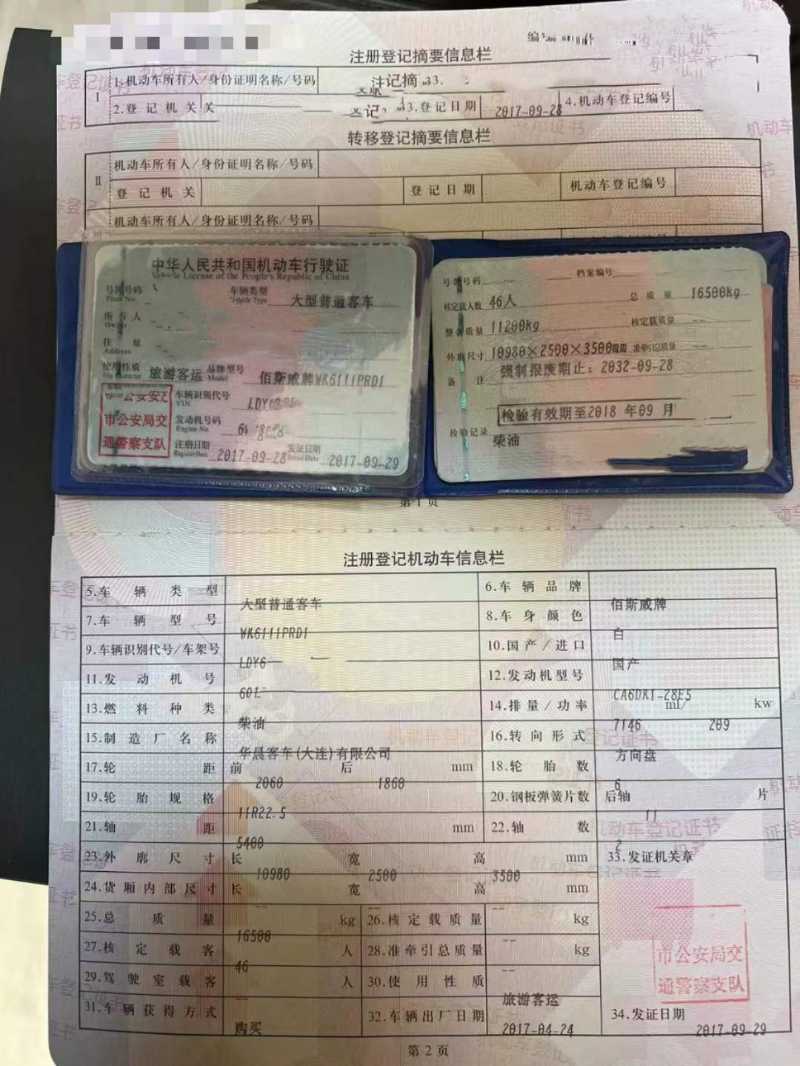 注册登记摘要信息栏
Ⅰ
1.机动车所有人/身份证明名称/号码
2.登记机关 3.登记日期 2017-09-28 4.机动车登记编号
转移登记摘要信息栏
Ⅱ
机动车所有人/身份证明名称/号码
登记机关 登记日期 机动车登记编号
机动车所有人/身份证明名称/号码
中华人民共和国机动车行驶证
Vehicle License of the People's Republic of China
号牌号码 车辆类型 大型普通客车
Plate No. Vehicle Type
所有人
Owner
住址
Address
使用性质 旅游客运 品牌型号 佰斯威牌WK6111PRD1
Model
车辆识别代号
VIN
市公安局交
通警察支队
发动机号码
Engine No.
注册日期 2017-09-28 发证日期 2017-09-29
Register Date Issue Date
号牌号码 档案编号
核定载人数 46人 总质量 16500kg
整备质量 11200kg 核定载质量 --
外廓尺寸 10980×2500×3500mm 准牵引总质量 --
备注 强制报废期止：2032-09-28
检验有效期至2018年09月
检验记录
柴油
第1页
注册登记机动车信息栏
5.车辆类型 大型普通客车 6.车辆品牌 佰斯威牌
7.车辆型号 WK6111PRD1 8.车身颜色 白
9.车辆识别代号/车架号 LDY6 10.国产/进口 国产
11.发动机号 12.发动机型号 CA6DK1-28E5
13.燃料种类 柴油 14.排量/功率 7146 ml/ 209 kw
15.制造厂名称 华晨客车(大连)有限公司 16.转向形式 方向盘
17.轮距 前 2060 后 1860 mm 18.轮胎数 6
19.轮胎规格 11R22.5 20.钢板弹簧片数 后轴 11 片
21.轴距 5400 mm 22.轴数 2
23.外廓尺寸 长 10980 宽 2500 高 3500 mm 33.发证机关章
24.货厢内部尺寸 长 -- 宽 -- 高 -- mm
25.总质量 16500 kg 26.核定载质量 -- kg
27.核定载客 46 人 28.准牵引总质量 -- kg
市公安局交
通警察支队
29.驾驶室载客 -- 人 30.使用性质 旅游客运
31.车辆获得方式 购买 32.车辆出厂日期 2017-04-24 34.发证日期 2017-09-29
第2页